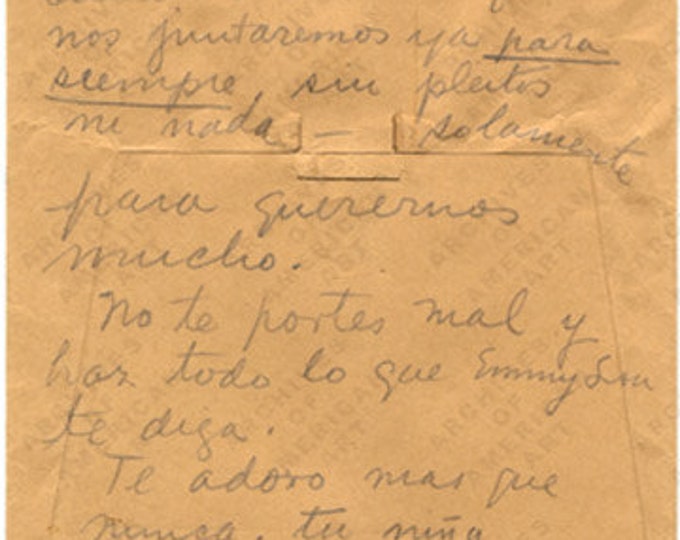 nos juntaremos ya para
siempre, sin pleitos
ni nada — solamente
para querernos
mucho.
No te portes mal y
haz todo lo que Emmy Lou
te diga.
Te adoro mas que
nunca. tu niña